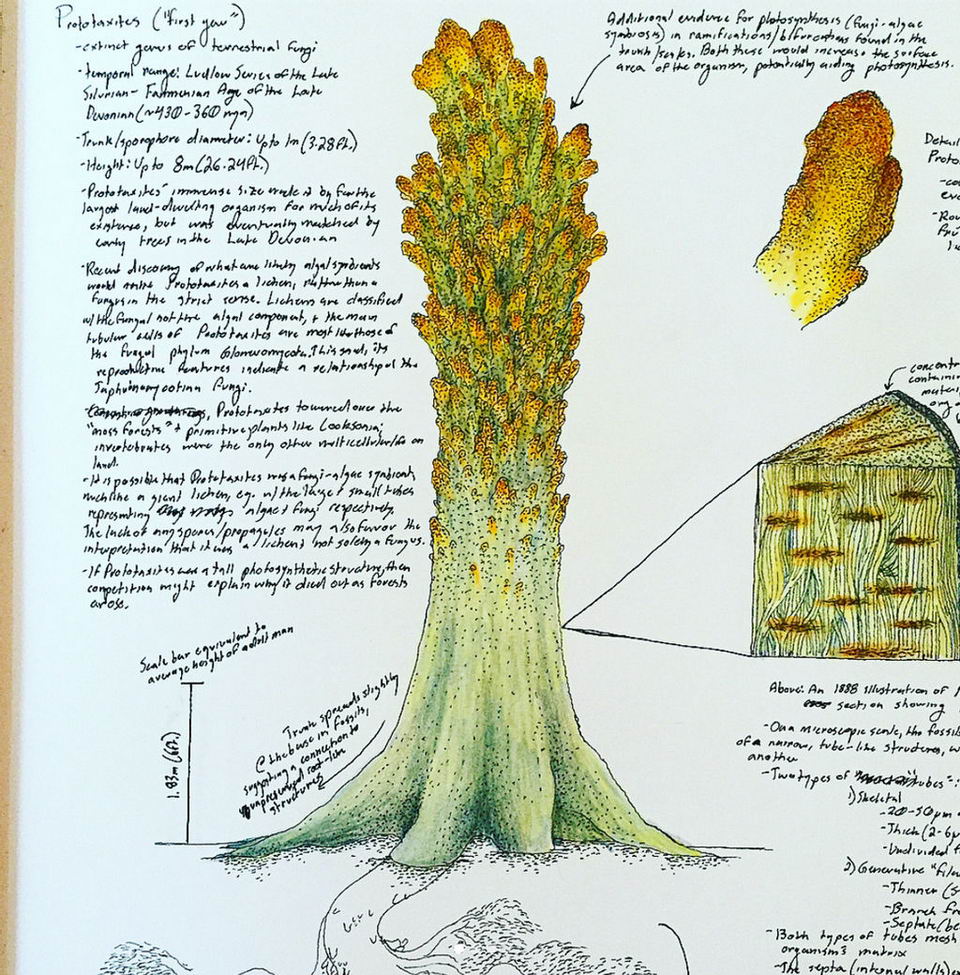 Prototaxites ("first yew")
-extinct genus of terrestrial fungi
-temporal range: Ludlow Series of the Late
Silurian- Famennian Age of the Late
Devonian (~430-360 mya)
-Trunk/sporophore diameter: Up to 1m (3.28ft.)
-Height: Up to 8m (26.24ft.)
-Prototaxites' immense size made it by far the
largest land-dwelling organism for much of its
existence, but was eventually matched by
early trees in the Late Devonian
-Recent discovery of what are likely algal symbionts
would make Prototaxites a lichen, rather than a
fungus in the strict sense. Lichens are classified
w/ the fungal not the algal component, & the main
tubular cells of Prototaxites are most like those of
the fungal phylum Glomeromycota. This said, its
reproductive features indicate a relationship w/ the
Taphrinomycotina fungi.
Prototaxites towered over the
"moss forests" & primitive plants like Cooksonia;
invertebrates were the only other multicellular life on
land.
-It is possible that Prototaxites was a fungi-algae symbiont,
much like a giant lichen, eg. w/ the large & small tubes
representing algae & fungi respectively.
The lack of any spores/propagules may also favor the
interpretation that it was a lichen & not solely a fungus.
-If Prototaxites was a tall photosynthetic structure, then
competition might explain why it died out as forests
arose.
Scale bar equivalent to
average height of adult man
1.83m (6ft.)
Trunk spreads slightly
@ the base in fossils,
suggesting a connection to
unpreserved root-like
structures
Additional evidence for photosynthesis (fungi-algae
symbiosis) in ramifications/bifurcations found in the
trunk/ Both these would increase the surface
area of the organism, potentially aiding photosynthesis.
Detail
Proto
-co
eve
-Rou
concentr
containin
mater
org
Above: An 1888 illustration of
section showing
-On a microscopic scale, the fossil
of a narrow, tube-like structures, w
another
-Two types of "tubes":
1) Skeletal
-20-50μm
-Thick (2-6μ
-Undivided f
2) Generative "fila
-Thinner (5
-Branch fre
-Septate (be
-Both types of tubes mesh
organism's matrix
-The septa (internal walls)